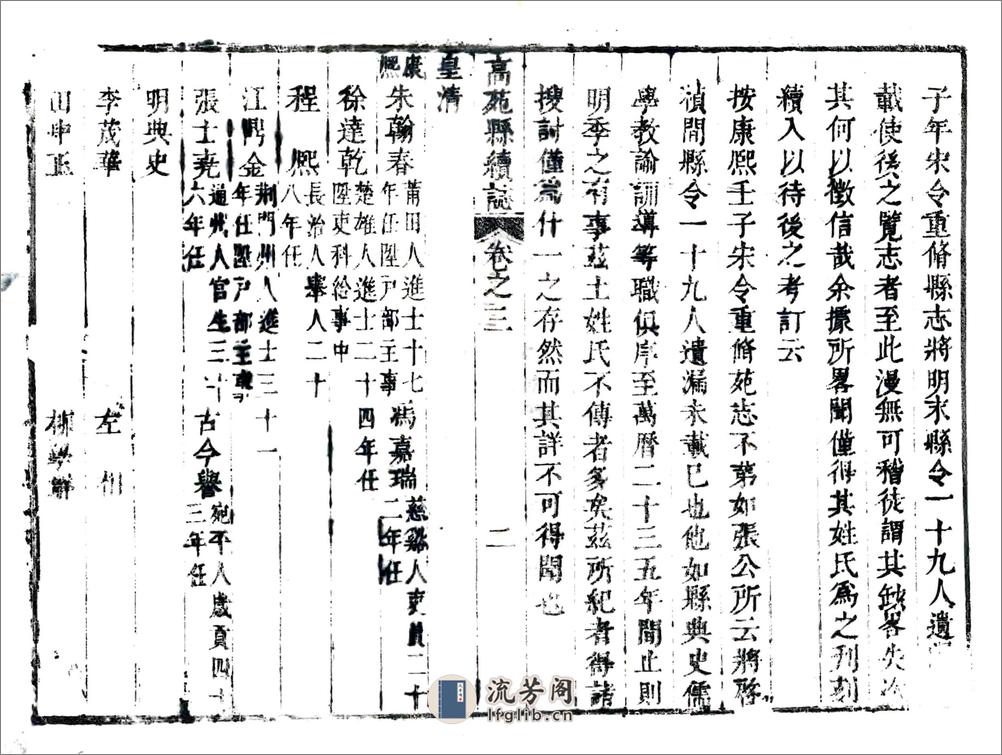 子年宋令重脩縣志將明末縣令一十九人遺
載使後之覽志者至此漫無可稽徒謂其缺畧失次
其何以徵信哉余據所畧聞僅得其姓氏爲之刊刻
續入以待後之考訂云
按康熙壬子宋令重脩苑志不第如張公所云將啓
禎間縣令一十九人遺漏未載已也他如縣典史儒
學教諭訓導等職俱序至萬曆二十三五年間止則
明季之有事茲土姓氏不傳者多矣茲所紀者得諸
搜討僅爲什一之存然而其詳不可得聞也
高苑縣續誌 卷之三 二
皇清
康熙 朱翰春 莆田人進士十七年任陞戸部主事 馮嘉瑞 慈谿人吏員二十二年任
徐達乾 楚雄人進士二十四年任陞吏科給事中
程熙 長治人舉人二十八年任
江闓金 荆門州人進士三十一年任陞戸部主事
張士堯 通州人官生三十六年任 古今譽 宛平人歲貢四十三年任
明典史
李茂華 左
田中